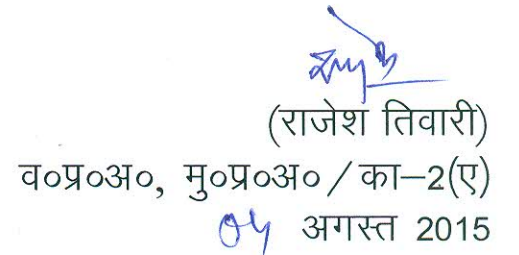 (राजेश तिवारी)
व०प्र०अ०, मु०प्र०अ० / का–2(ए)
04 अगस्त 2015